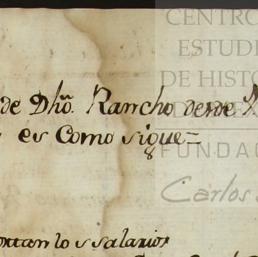 CENTRO
ESTUDI
DE HISTO
de Dhõ. Rancho desde
es Como sigue=
FUNDAC
Carlos
ortan los salarios